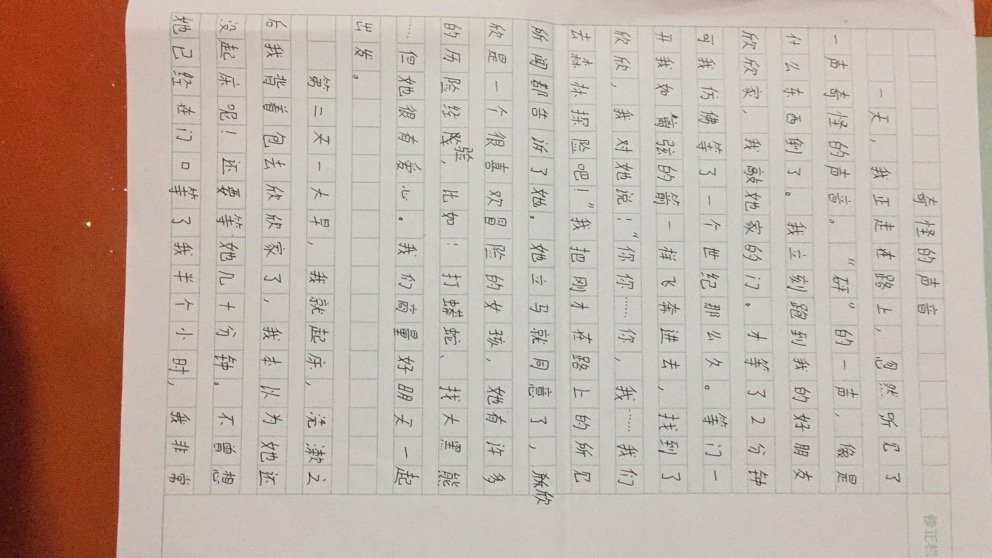 奇怪的声音
一天，我正走在路上，忽然听见了
一声奇怪的声音。“砰”的一声，像是
什么东西倒了。我立刻跑到我的好朋友
欣欣家，我敲她家的门。才等了2分钟
可我仿佛等了一个世纪那么久。等门一
开我如离弦的箭一样飞奔进去，找到了
欣欣，我对她说：“你你……你，我……我们
去森林探险吧！”我把刚才在路上的所见
所闻都告诉了她。她立马就同意了，欣
欣是一个很喜欢冒险的女孩，她有许多
的历险经验，比如：打蟒蛇、找大黑熊
……但她很有爱心。我们商量好明天一起
出发。
第二天一大早，我就起床，洗漱之
后我背着包去欣欣家了，我本以为她还
没起床呢！还要等她几十分钟。不曾想
她已经在门口等了我半个小时，我非常
修正栏